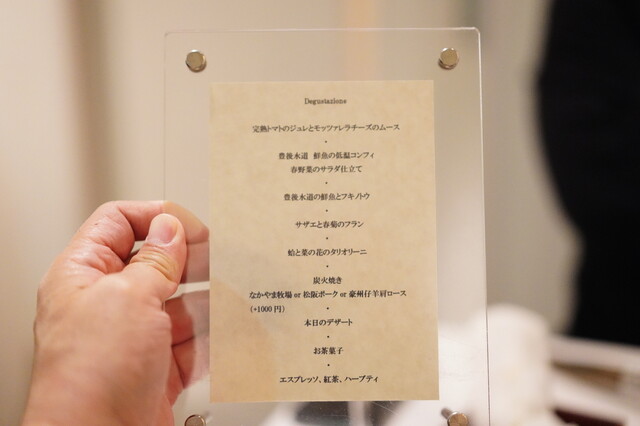 Degustazione
完熟トマトのジュレとモッツァレラチーズのムース
・
豊後水道 鮮魚の低温コンフィ
春野菜のサラダ仕立て
・
豊後水道の鮮魚とフキノトウ
・
サザエと春菊のフラン
・
蛤と菜の花のタリオリーニ
・
炭火焼き
なかやま牧場 or 松阪ポーク or 豪州仔羊肩ロース
(+1000円)
・
本日のデザート
・
お茶菓子
・
エスプレッソ、紅茶、ハーブティ